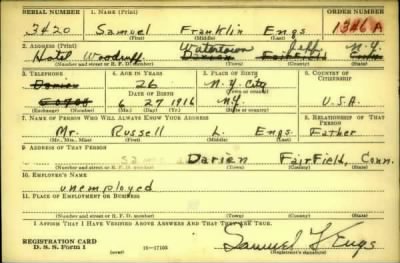 SERIAL NUMBER 1. NAME (Print) ORDER NUMBER
3420 Samuel Franklin Engs 1346 A
(First) (Middle) (Last)
2. ADDRESS (Print)
Hotel Woodruff Watertown Jeff N.Y.
Darien Fairfield Conn
(Number and street or R. F. D. number) (Town) (County) (State)
3. TELEPHONE 4. AGE IN YEARS 5. PLACE OF BIRTH 6. COUNTRY OF CITIZENSHIP
Darien 26 N.Y. City
DATE OF BIRTH
6 27 1916 N.Y. U.S.A.
(Mo.) (Day) (Yr.)
7. NAME OF PERSON WHO WILL ALWAYS KNOW YOUR ADDRESS 8. RELATIONSHIP OF THAT PERSON
Mr. Russell L. Engs Father
(Mr., Mrs., Miss) (First) (Middle) (Last)
9. ADDRESS OF THAT PERSON
Darien Fairfield, Conn.
(Number and street or R. F. D. number) (Town) (County) (State)
10. EMPLOYER'S NAME
unemployed
11. PLACE OF EMPLOYMENT OR BUSINESS
(Number and street or R. F. D. number) (Town) (County) (State)
I AFFIRM THAT I HAVE VERIFIED ABOVE ANSWERS AND THAT THEY ARE TRUE.
REGISTRATION CARD
D. S. S. Form 1 (over) 16—17105 Samuel F Engs